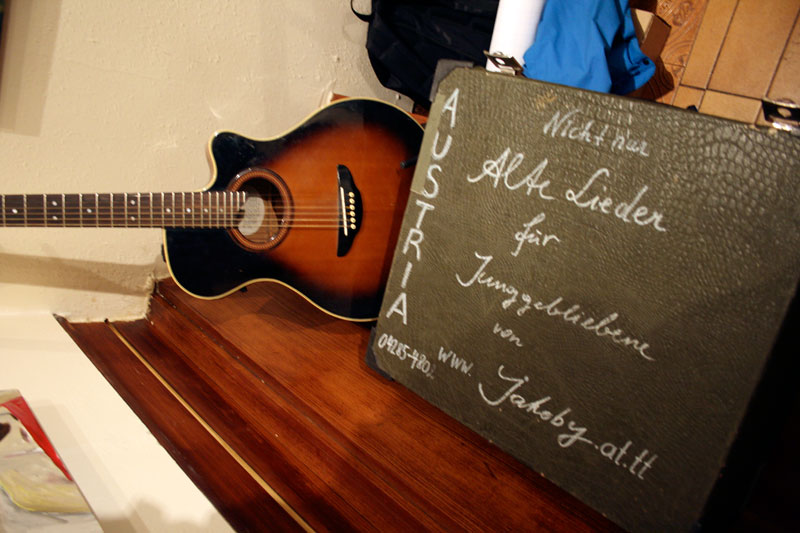 AUSTRIA
Nicht nur
Alte Lieder
für
Junggebliebene
von
www.Jakoby.at.tt